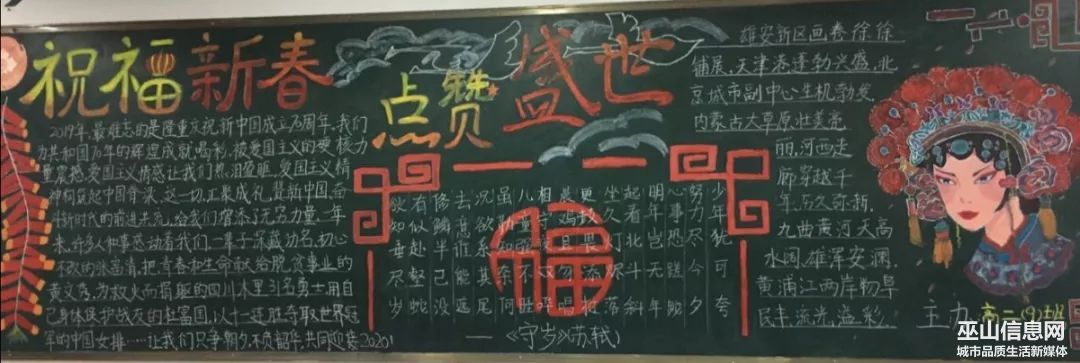 祝福新春
点赞盛世
2019年,最难忘的是隆重庆祝新中国成立70周年,我们
为共和国70年的辉煌成就喝彩,被爱国主义的硬核力
量震撼,爱国主义情感让我们热泪盈眶,爱国主义精
神构筑起中国脊梁,这一切,正汇成礼赞新中国,奋
斗新时代的前进洪流,给我们增添了无穷力量。一年
来,许多人和事感动着我们,一辈子深藏功名,初心
不改的张富清,把青春和生命献给脱贫事业的
黄文秀,为救火而捐躯的四川木里31名勇士,用自
己身体保护战友的杜富国,以十一连胜夺取世界冠
军的中国女排……让我们只争朝夕,不负韶华,共同迎接2020!
欲知垂尽岁
有似赴壑蛇
修鳞半已没
去意谁能遮
况欲系其尾
虽勤知奈何
儿童强不睡
相守夜欢哗
晨鸡且勿唱
更鼓畏添挝
坐久灯烬落
起看北斗斜
明年岂无年
心事恐蹉跎
努力尽今夕
少年犹可夸
——《守岁》苏轼
雄安新区画卷徐徐
铺展,天津港蓬勃兴盛,北
京城市副中心生机勃发
内蒙古大草原壮美亮
丽,河西走
廊穿越千
年,历久弥新,
九曲黄河天高
水阔,雄浑安澜,
黄浦江两岸物阜
民丰,流光溢彩,
主办 高二(9)班
巫山信息网
城市品质生活新媒体